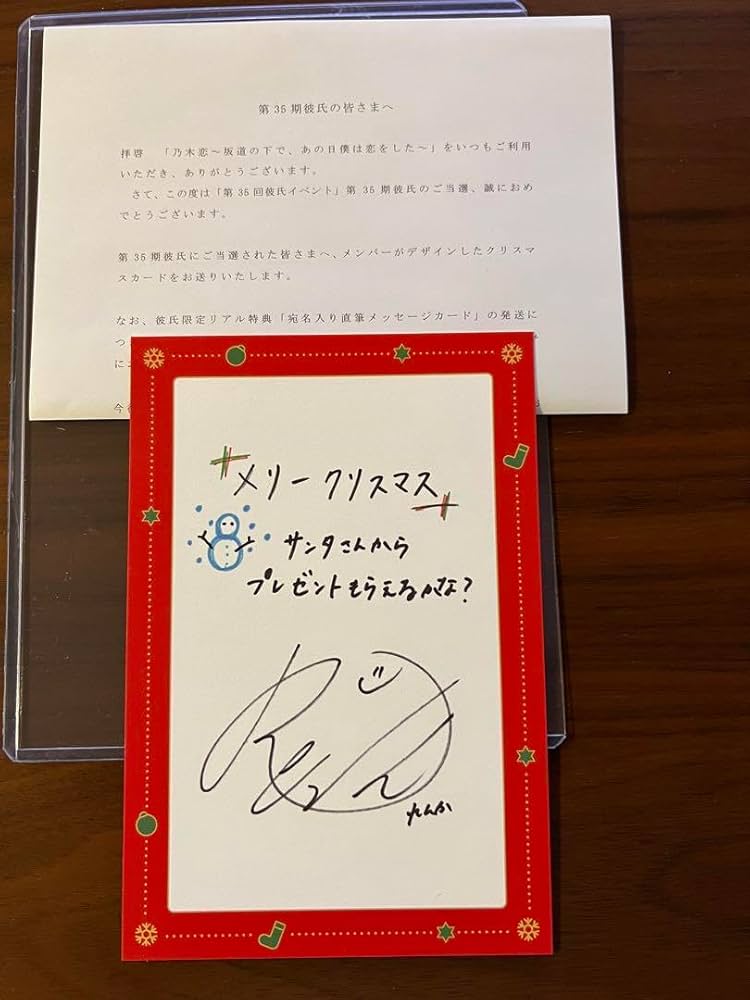 第35期彼氏の皆さまへ
拝啓　「乃木恋～坂道の下で、あの日僕は恋をした～」をいつもご利用
いただき、ありがとうございます。
さて、この度は「第35回彼氏イベント」第35期彼氏のご当選、誠におめ
でとうございます。
第35期彼氏にご当選された皆さまへ、メンバーがデザインしたクリスマ
スカードをお送りいたします。
なお、彼氏限定リアル特典「宛名入り直筆メッセージカード」の発送に
つ
に
今
メリークリスマス
サンタさんから
プレゼントもらえるかな?
れんか